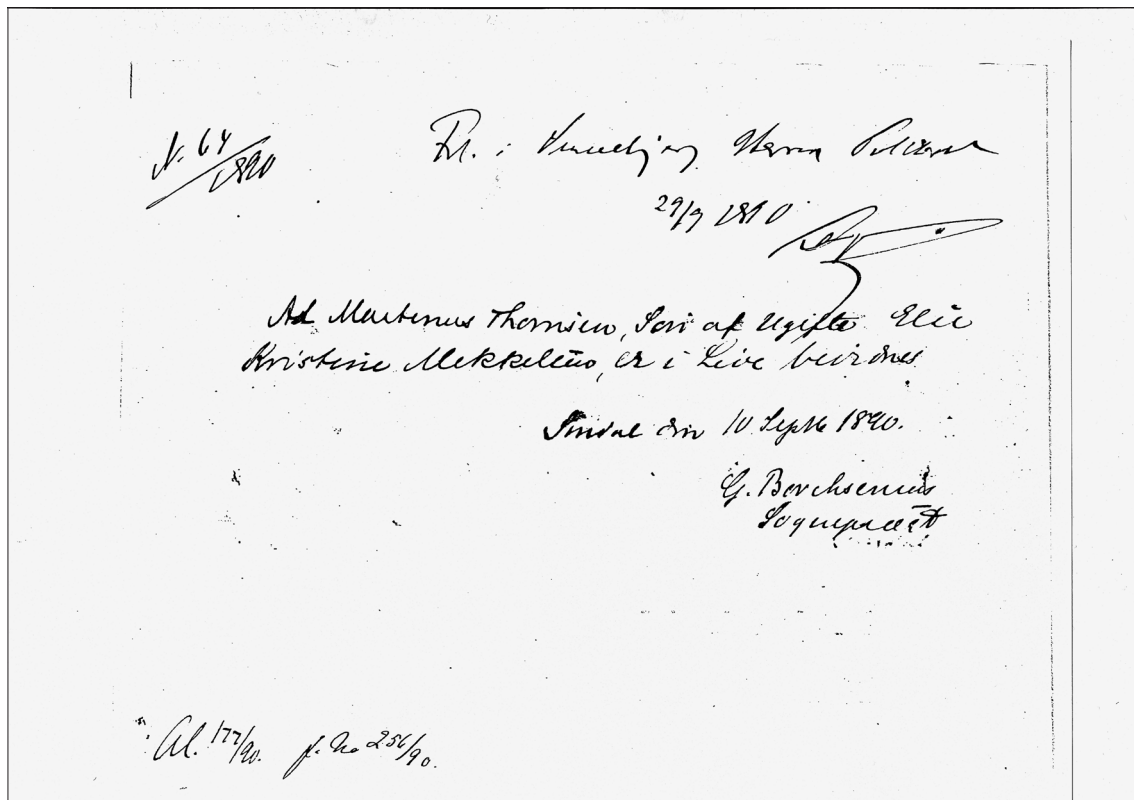 N. 64/1890
Fr. i Vennebjerg Herred
29/9 1890
Ad Martinus Thomsen, Søn af Ugifte Else
Kristine Mekkelsen, er i Live bevidnes
Sindal den 10 Septbr 1890.
G. Borchsenius
Sognepræst
Al. 177/90. J. No 256/90.